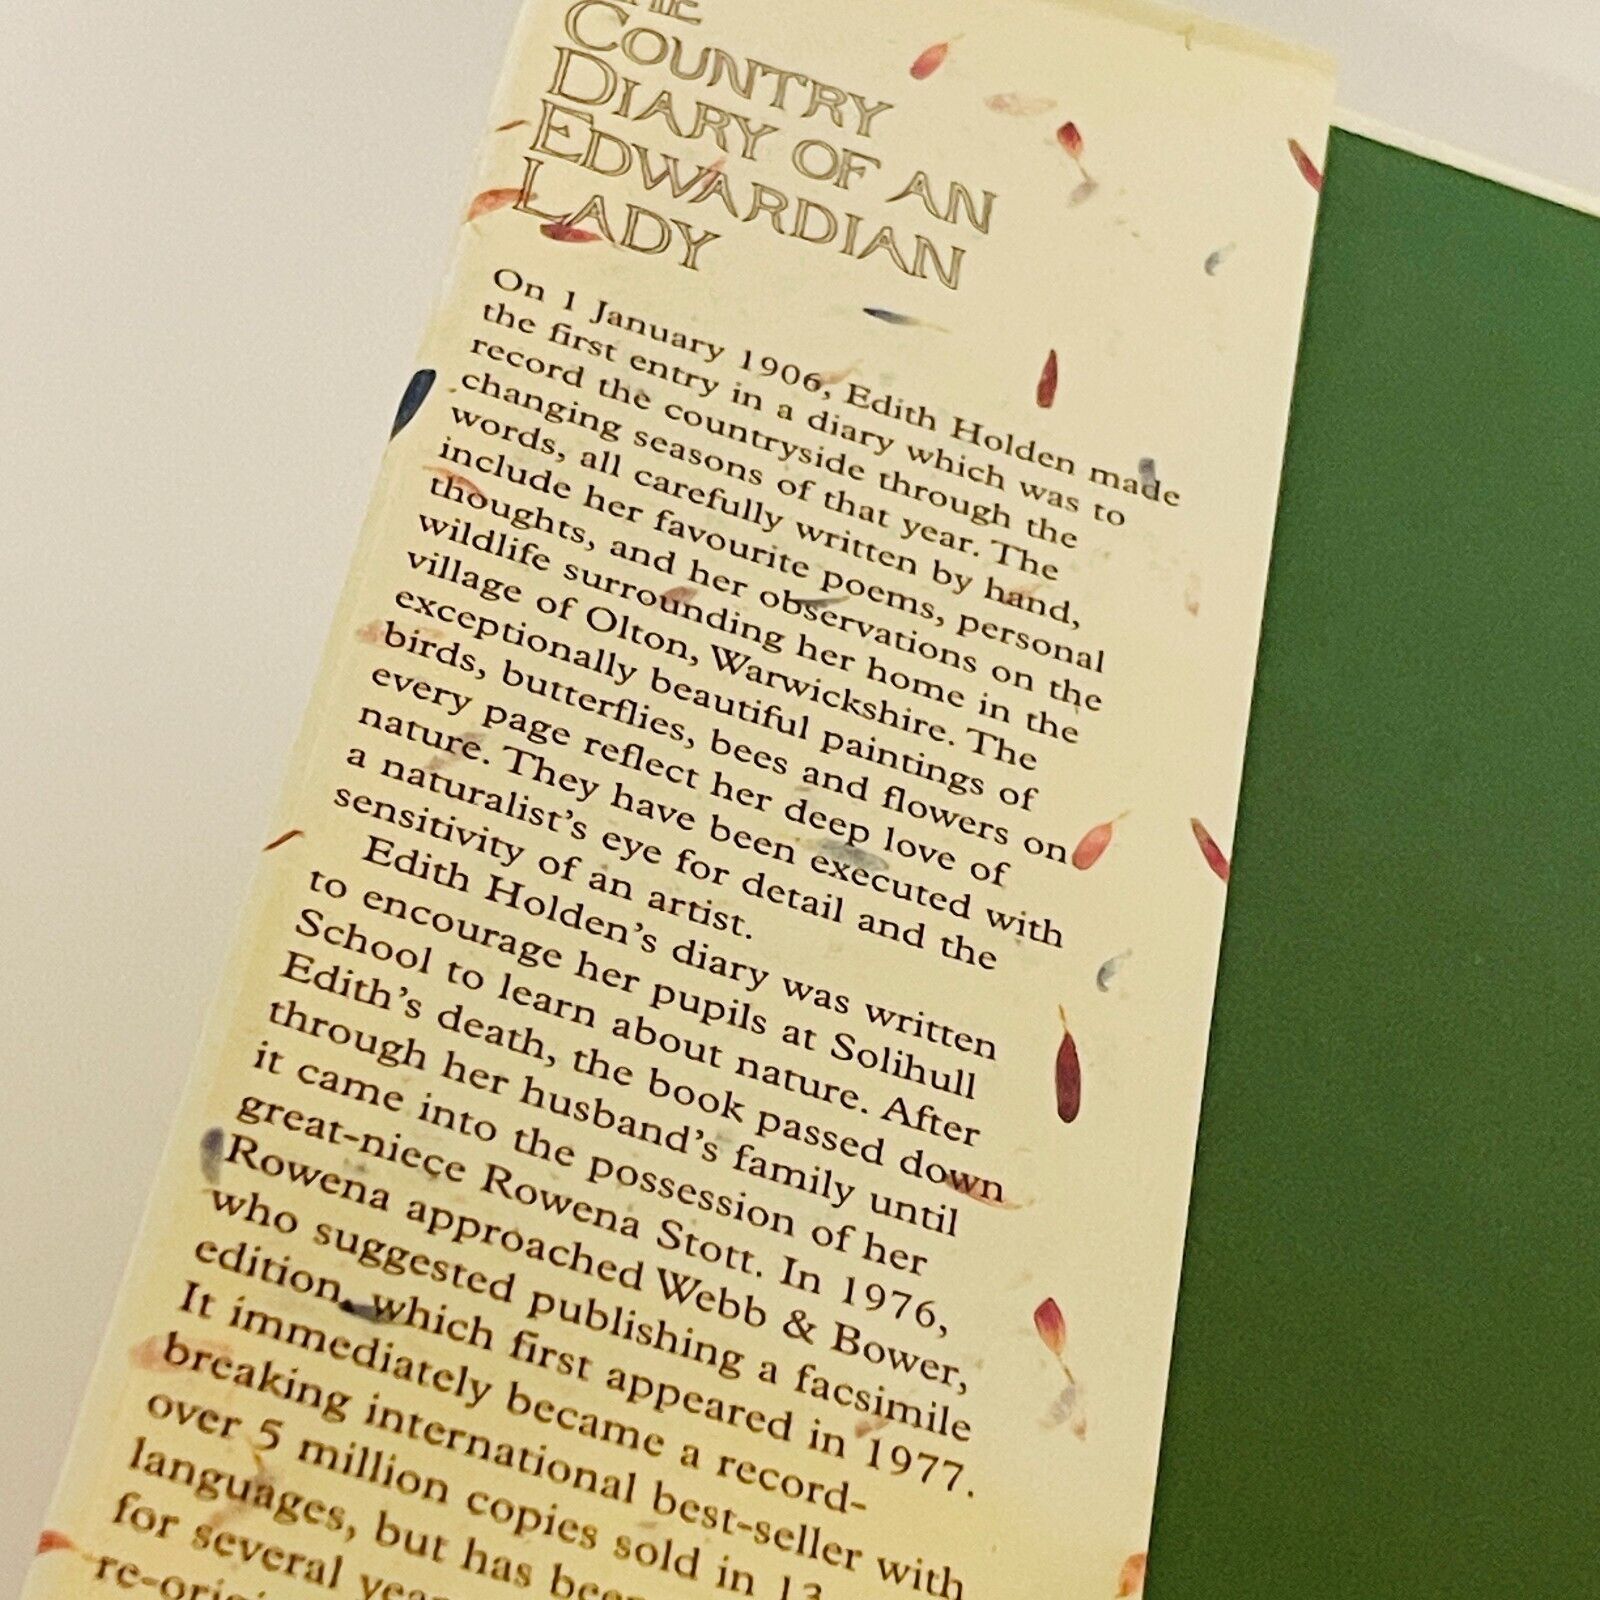 THE
COUNTRY
DIARY OF AN
EDWARDIAN
LADY
On 1 January 1906, Edith Holden made
the first entry in a diary which was to
record the countryside through the
changing seasons of that year. The
words, all carefully written by hand,
include her favourite poems, personal
thoughts, and her observations on the
wildlife surrounding her home in the
village of Olton, Warwickshire. The
exceptionally beautiful paintings of
birds, butterflies, bees and flowers on
every page reflect her deep love of
nature. They have been executed with
a naturalist's eye for detail and the
sensitivity of an artist.
Edith Holden's diary was written
to encourage her pupils at Solihull
School to learn about nature. After
Edith's death, the book passed down
through her husband's family until
it came into the possession of her
great-niece Rowena Stott. In 1976,
Rowena approached Webb & Bower,
who suggested publishing a facsimile
edition, which first appeared in 1977.
It immediately became a record-
breaking international best-seller with
over 5 million copies sold in 13
languages, but has been
for several